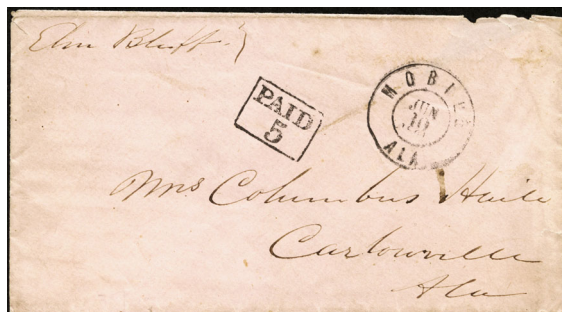 Elm Bluff
PAID
5
MOBILE
JUN
ALA
Mrs Columbus Haile
Carlowville
Ala